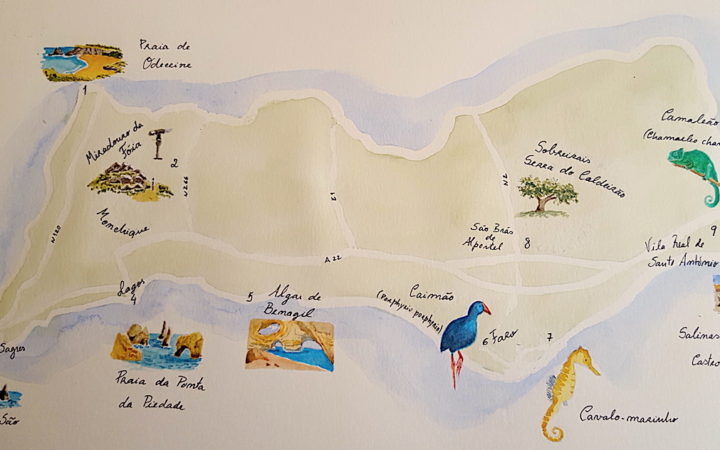 Praia de
Odeceixe
1
Miradouro da
Fóia
2
Monchique
N120
N266
E1
N2
A22
Sobreirais
Serra do Caldeirão
São Brás
de
Alportel
8
Camaleão
(Chamaeleo cham
9
Vila Real de
Santo António
Lagos
4
5
Algar de
Benagil
Caimão
(Porphyrio porphyrio)
6 Faro
7
Sagres
São
Praia da Ponta
da Piedade
Cavalo-marinho
Salinas
Castro